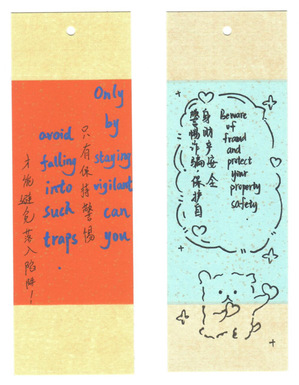 Only
by
staying
vigilant
can
you
avoid
falling
into
such
traps.
只有保持警惕
才能避免落入陷阱！
警惕诈骗，保护自
身财产安全
Beware
of
fraud
and
protect
your
property
safety